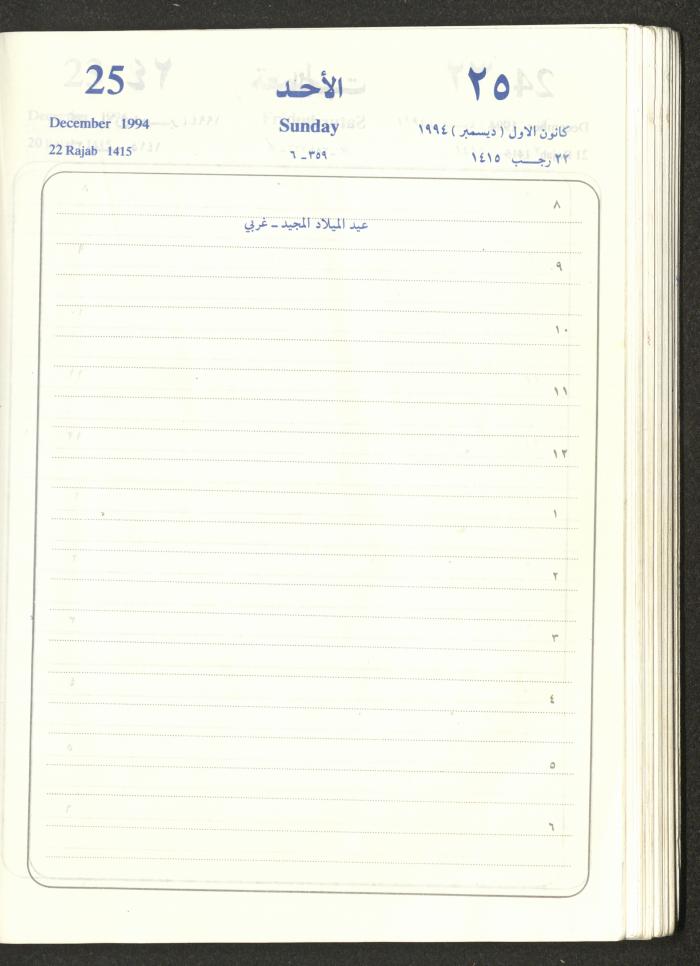 25 الأحد ٢٥
December 1994 Sunday كانون الاول ( ديسمبر ) ١٩٩٤
22 Rajab 1415 ٣٥٩ - ٦ ٢٢ رجب ١٤١٥
٨
عيد الميلاد المجيد - غربي
٩
١٠
١١
١٢
١
٢
٣
٤
٥
٦